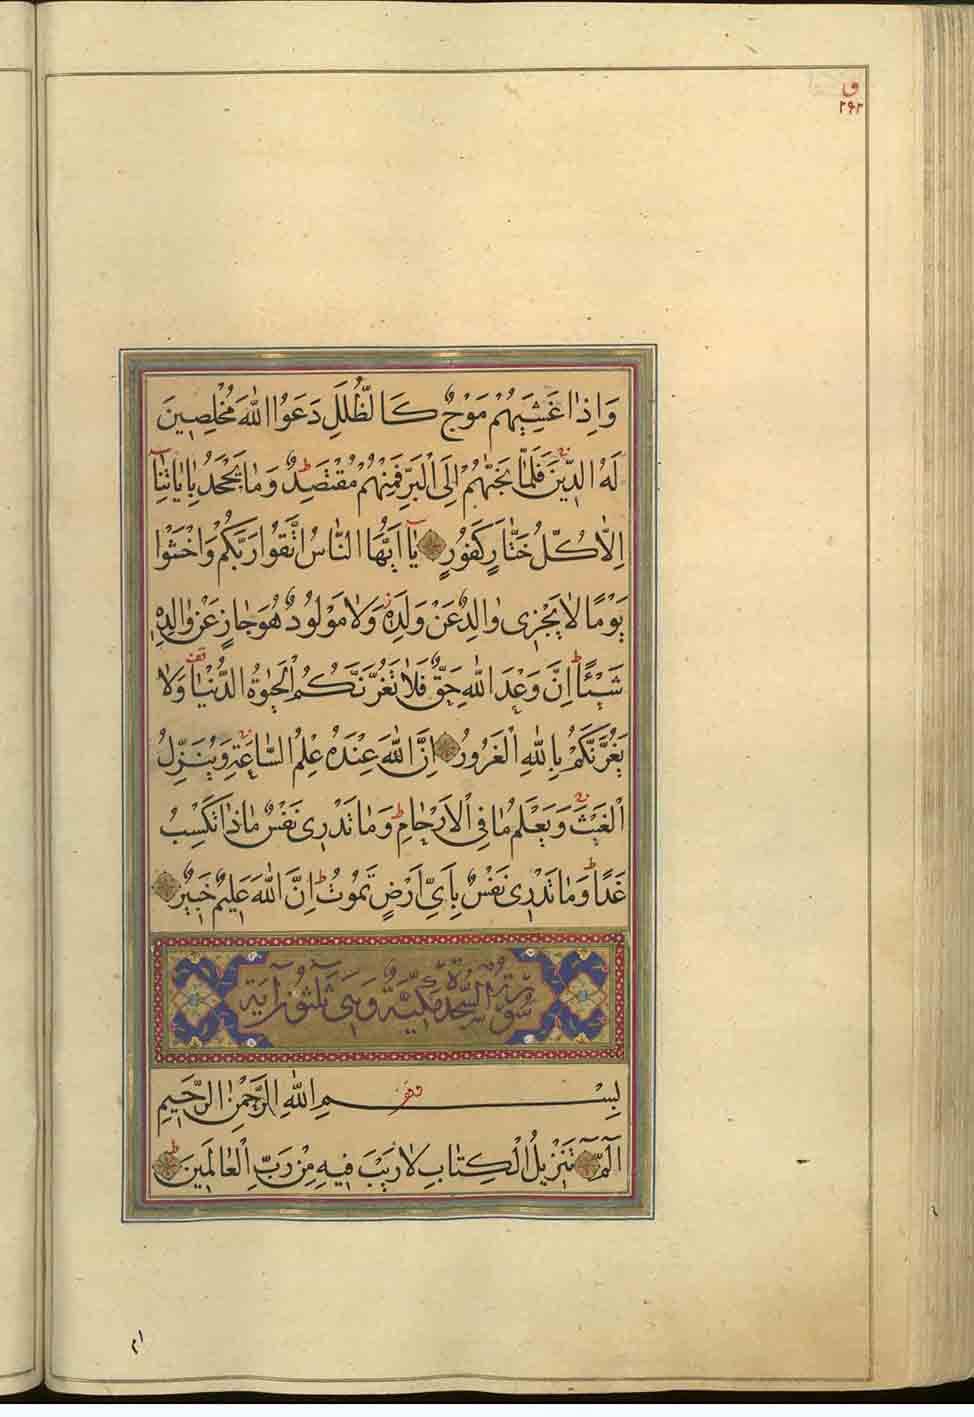 ق
۲۹۲
وَاِذَا غَشِيَهُمْ مَوْجٌ كَالظُّلَلِ دَعَوُا اللّٰهَ مُخْلِصِينَ
لَهُ الدِّينَ فَلَمَّا نَجّٰيهُمْ اِلَى الْبَرِّ فَمِنْهُمْ مُقْتَصِدٌ وَمَا يَجْحَدُ بِاٰيَاتِنَا
اِلَّا كُلُّ خَتَّارٍ كَفُورٍ يَا اَيُّهَا النَّاسُ اتَّقُوا رَبَّكُمْ وَاخْشَوْا
يَوْمًا لَا يَجْزِى وَالِدٌ عَنْ وَلَدِهٖ وَلَا مَوْلُودٌ هُوَ جَازٍ عَنْ وَالِدِهٖ
شَيْئًا اِنَّ وَعْدَ اللّٰهِ حَقٌّ فَلَا تَغُرَّنَّكُمُ الْحَيٰوةُ الدُّنْيَا وَلَا
يَغُرَّنَّكُمْ بِاللّٰهِ الْغَرُورُ اِنَّ اللّٰهَ عِنْدَهُ عِلْمُ السَّاعَةِ وَيُنَزِّلُ
الْغَيْثَ وَيَعْلَمُ مَا فِى الْاَرْحَامِ وَمَا تَدْرِى نَفْسٌ مَاذَا تَكْسِبُ
غَدًا وَمَا تَدْرِى نَفْسٌ بِاَىِّ اَرْضٍ تَمُوتُ اِنَّ اللّٰهَ عَلِيمٌ خَبِيرٌ
سُورَةُ السَّجْدَةِ مَكِّيَّةٌ وَهِىَ ثَلٰثُونَ اٰيَة
بِسْمِ اللّٰهِ الرَّحْمٰنِ الرَّحِيمِ
الٓمٓ تَنْزِيلُ الْكِتَابِ لَا رَيْبَ فِيهِ مِنْ رَبِّ الْعَالَمِينَ